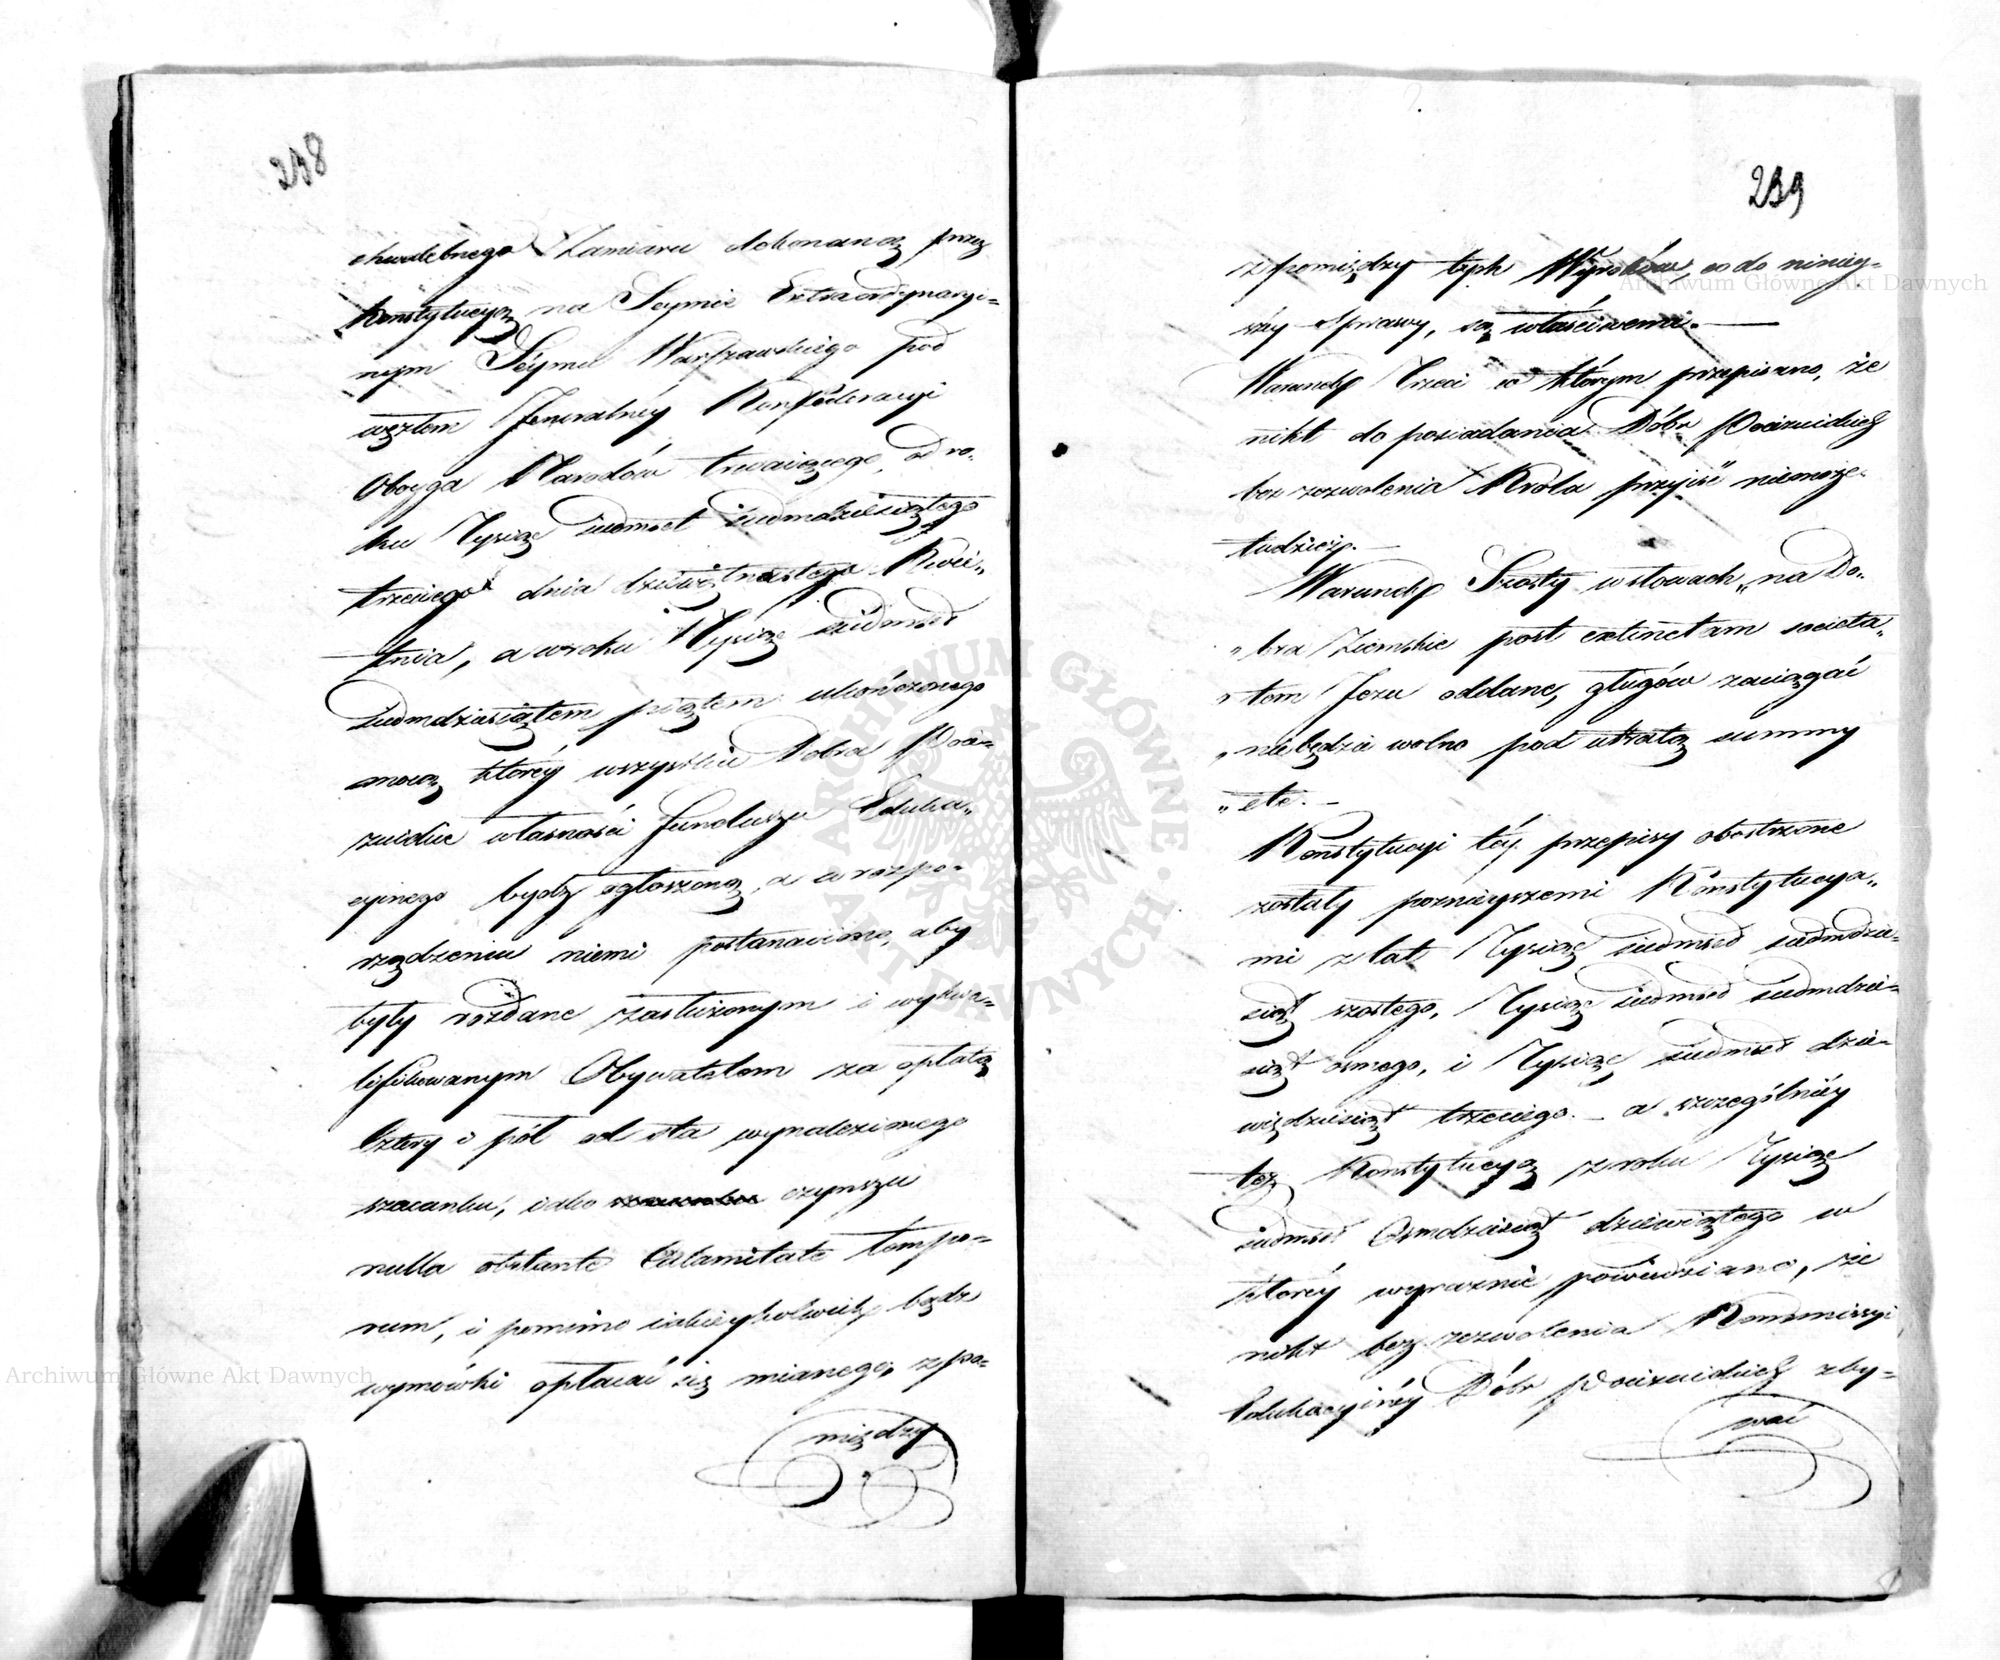 238
chwalebnego Zamiaru dokonaną przez
Konstytucyą na Seymie Extraordynaryi-
nym Séymu Warszawskiego pod
węzłem Jeneralnéy Konfederacyi
Oboyga Narodów trwaiącego, od ro-
ku Tysiąc siedmset siedmdziesiątego
trzeciego dnia dziewiętnastego Kwie„
tnia, a w roku Tysiąc siedmset
siedmdziesiątem piątem ukończonego
mocą któréy wszystkie Dobra Poie-
zuickie własności Funduszu Eduka„
cyinego bydź ogłoszoną, a w rozpo-
rządzeniu niemi postanowiono, aby
były rozdane zasłużonym i wykwa-
lifikowanym Obywatelom za opłatą
Cztery i pół od sta wynalezionego
szacunku, iako czynszu
nulla obstante Calamitate tempo-
rum, i pomimo iakieykolwiek bądź
wymówki opłacać się mianego, z po-
między
239
z pomiędzy tych Wyroków, co do niniey-
széy Sprawy, są właściwemi.
Warunek Trzeci w którym przepisano, że
nikt do posiadania Dóbr Poiezuickich
bez zezwolenia Króla przyiść niemoże
tudzież.
Warunek Szósty w słowach „na Do„
„bra Ziemskie post extinctam societa„
„tem Jezu oddane, długów zaciągać
„niebędzie wolno pod utratą summy
„etc.
Konstytucyi téy przepisy obostrzone
zostały poznieyszemi Konstytucya„
mi z lat Tysiąc siedmset siedmdzie-
siąt szóstego, Tysiąc siedmset siedmdzie-
siąt osmego, i Tysiąc siedmset dzie-
więdziesiąt trzeciego. a szczególniéy
też Konstytucyą z roku Tysiąc
siedmset Osmdziesiąt dziewiątego w
któréy wyraznie powiedziano, że
nikt bez zezwolenia Kommissyi
Edukacyinéy Dóbr Poiezuickich zby-
wać
Archiwum Główne Akt Dawnych
Archiwum Główne Akt Dawnych
ARCHIWUM GŁÓWNE AKT DAWNYCH